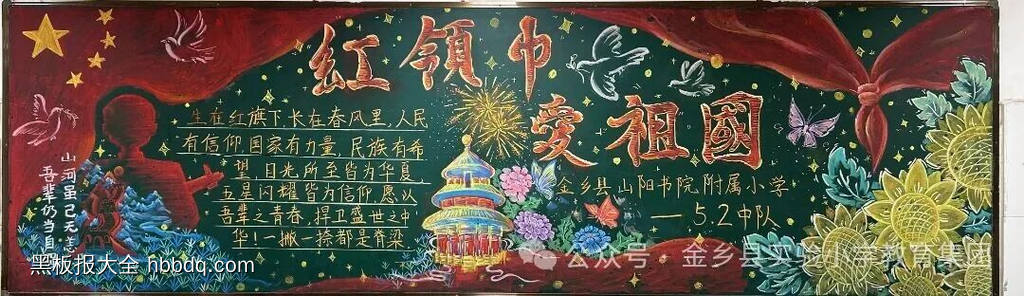 红领巾
爱祖國
生在红旗下,长在春风里,人民
有信仰,国家有力量,民族有希
望,目光所至皆为华夏
五星闪耀皆为信仰,愿以
吾辈之青春,捍卫盛世之中
华!一撇一捺都是脊梁
金乡县山阳书院附属小学
—5.2中队
山河虽已无恙
吾辈仍当自
黑板报大全 hbbdq.com
公众号·金乡县实验小学教育集团